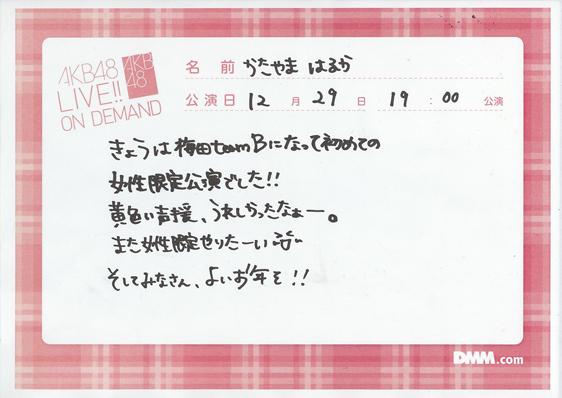 AKB48
LIVE!!
ON DEMAND
AKB
48
名前 かたやま はるか
公演日 12月 29日 19:00 公演
きょうは梅田teamBになって初めての
女性限定公演でした!!
黄色い声援、うれしかったなぁー。
また女性限定やりたーい
そしてみなさん、よいお年を!!
DMM.com